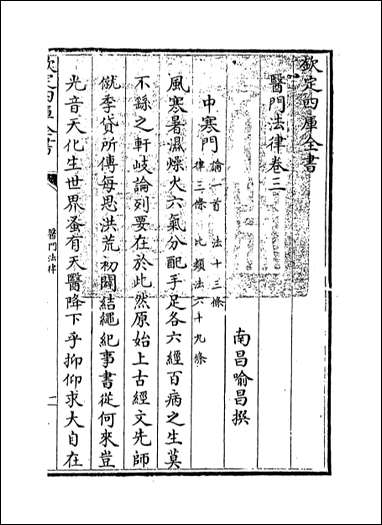 欽定四庫全書
醫門法律卷三
南昌喻昌撰
中寒門論一首 法十三條
律三條 比類法六十九條
風寒暑濕燥火六氣分配手足各六經百病之生莫
不繇之軒岐論列要在於此然原始上古經文先師
僦季貸所傳每思洪荒初闢結繩紀事書從何來豈
光音天化生世界蚤有天醫降下乎抑仰求大自在
欽定四庫全書
醫門法律